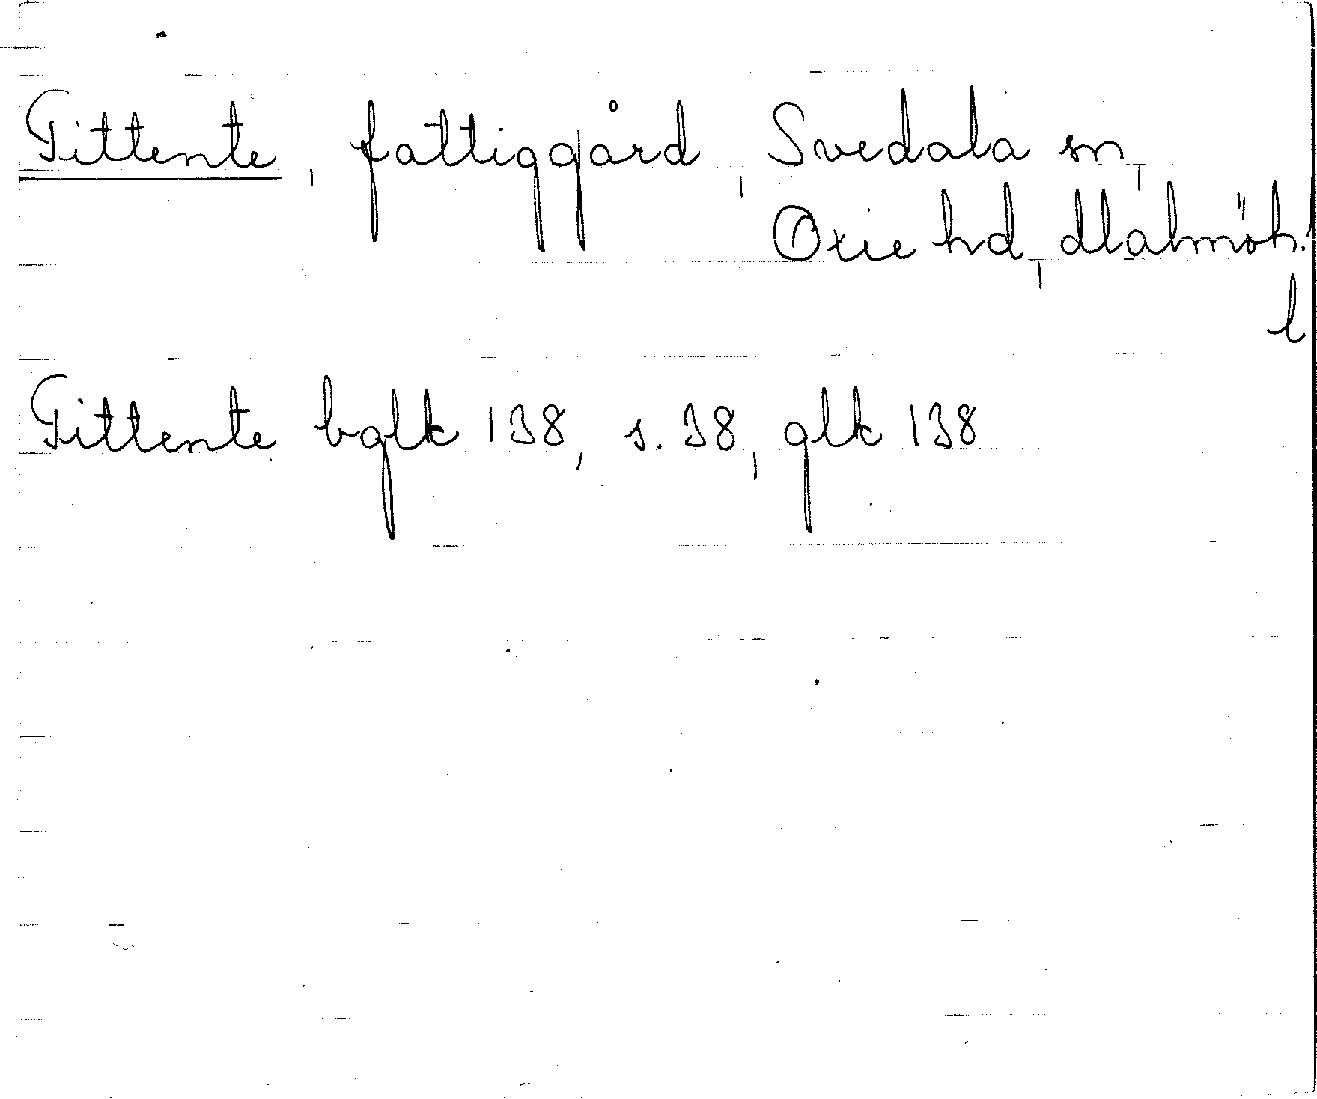 Tittente, fattiggård, Svedala sn,
Oxie hd, Malmöh.
l
Tittente bglk 138, s. 38, glk 138